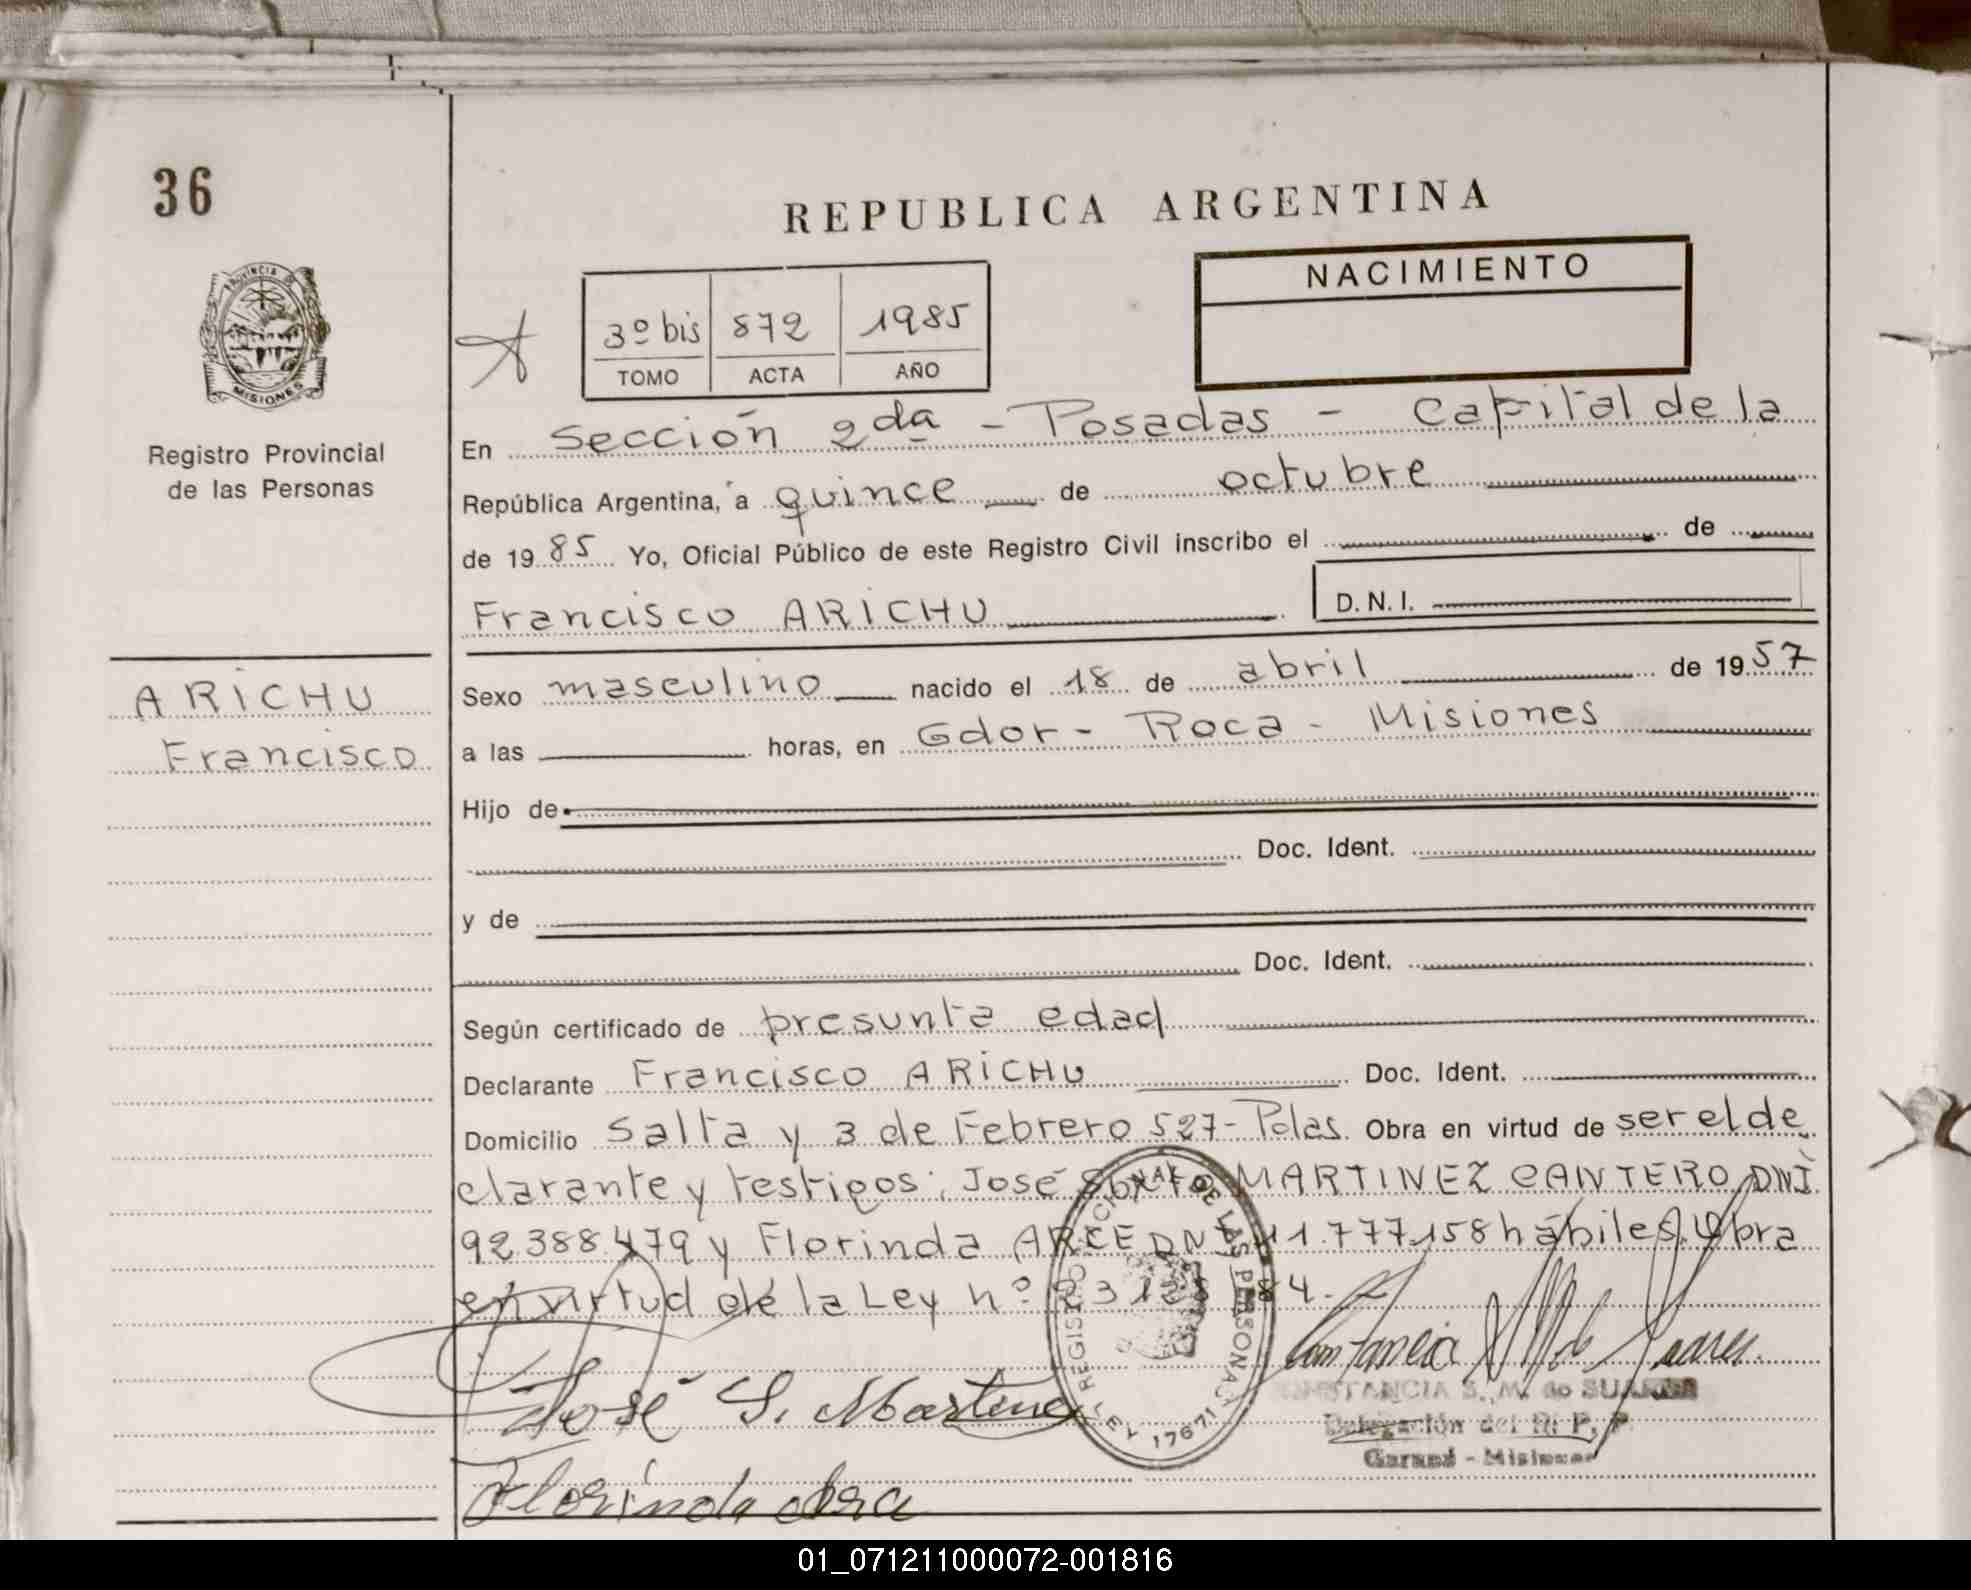 36
REPUBLICA ARGENTINA
NACIMIENTO
3º bis 872 1985
TOMO ACTA AÑO
PROVINCIA DE
MISIONES
Registro Provincial
de las Personas
En Sección 2da - Posadas - Capital de la
República Argentina, a quince de octubre
de 1985 Yo, Oficial Público de este Registro Civil inscribo el de
Francisco ARICHU D.N.I.
ARICHU
Francisco
Sexo masculino nacido el 18 de abril de 1957
a las horas, en Gdor - Roca - Misiones
Hijo de
Doc. Ident.
y de
Doc. Ident.
Según certificado de presunta edad
Declarante Francisco ARICHU Doc. Ident.
Domicilio Salta y 3 de Febrero 527- Pdas. Obra en virtud de ser el de
clarante y testigos: José MARTINEZ CANTERO DNI
92.388.479 y Florinda ARCE DNI 11.777.158 hábiles. Obra
en virtud de la Ley nº 84.-
José S. Martinez
Constancia Suares
CONSTANCIA S. M. de SUAREZ
Delegación del R. P. P.
Garupá - Misiones
Florinda Arce
REGISTRO NACIONAL DE LAS PERSONAS
17671
01_071211000072-001816